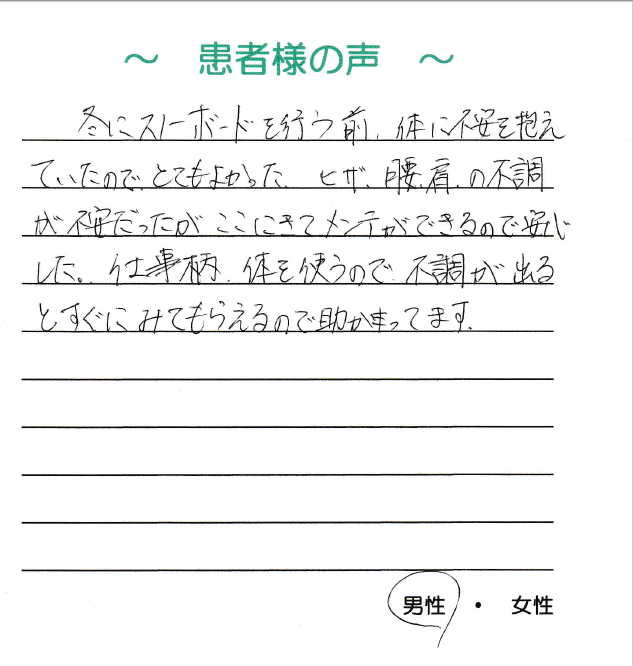 ～ 患者様の声 ～
冬にスノーボードを行う前、体に不安を抱え
ていたので、とてもよかった。ヒザ、腰、肩、の不調
が不安だったが ここにきてメンテができるので安心
した。仕事柄、体を使うので、不調が出る
とすぐにみてもらえるので助かまってます。
男性 ・ 女性